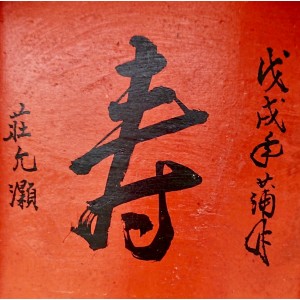 戊戌年蒲月
寿
莊允灝